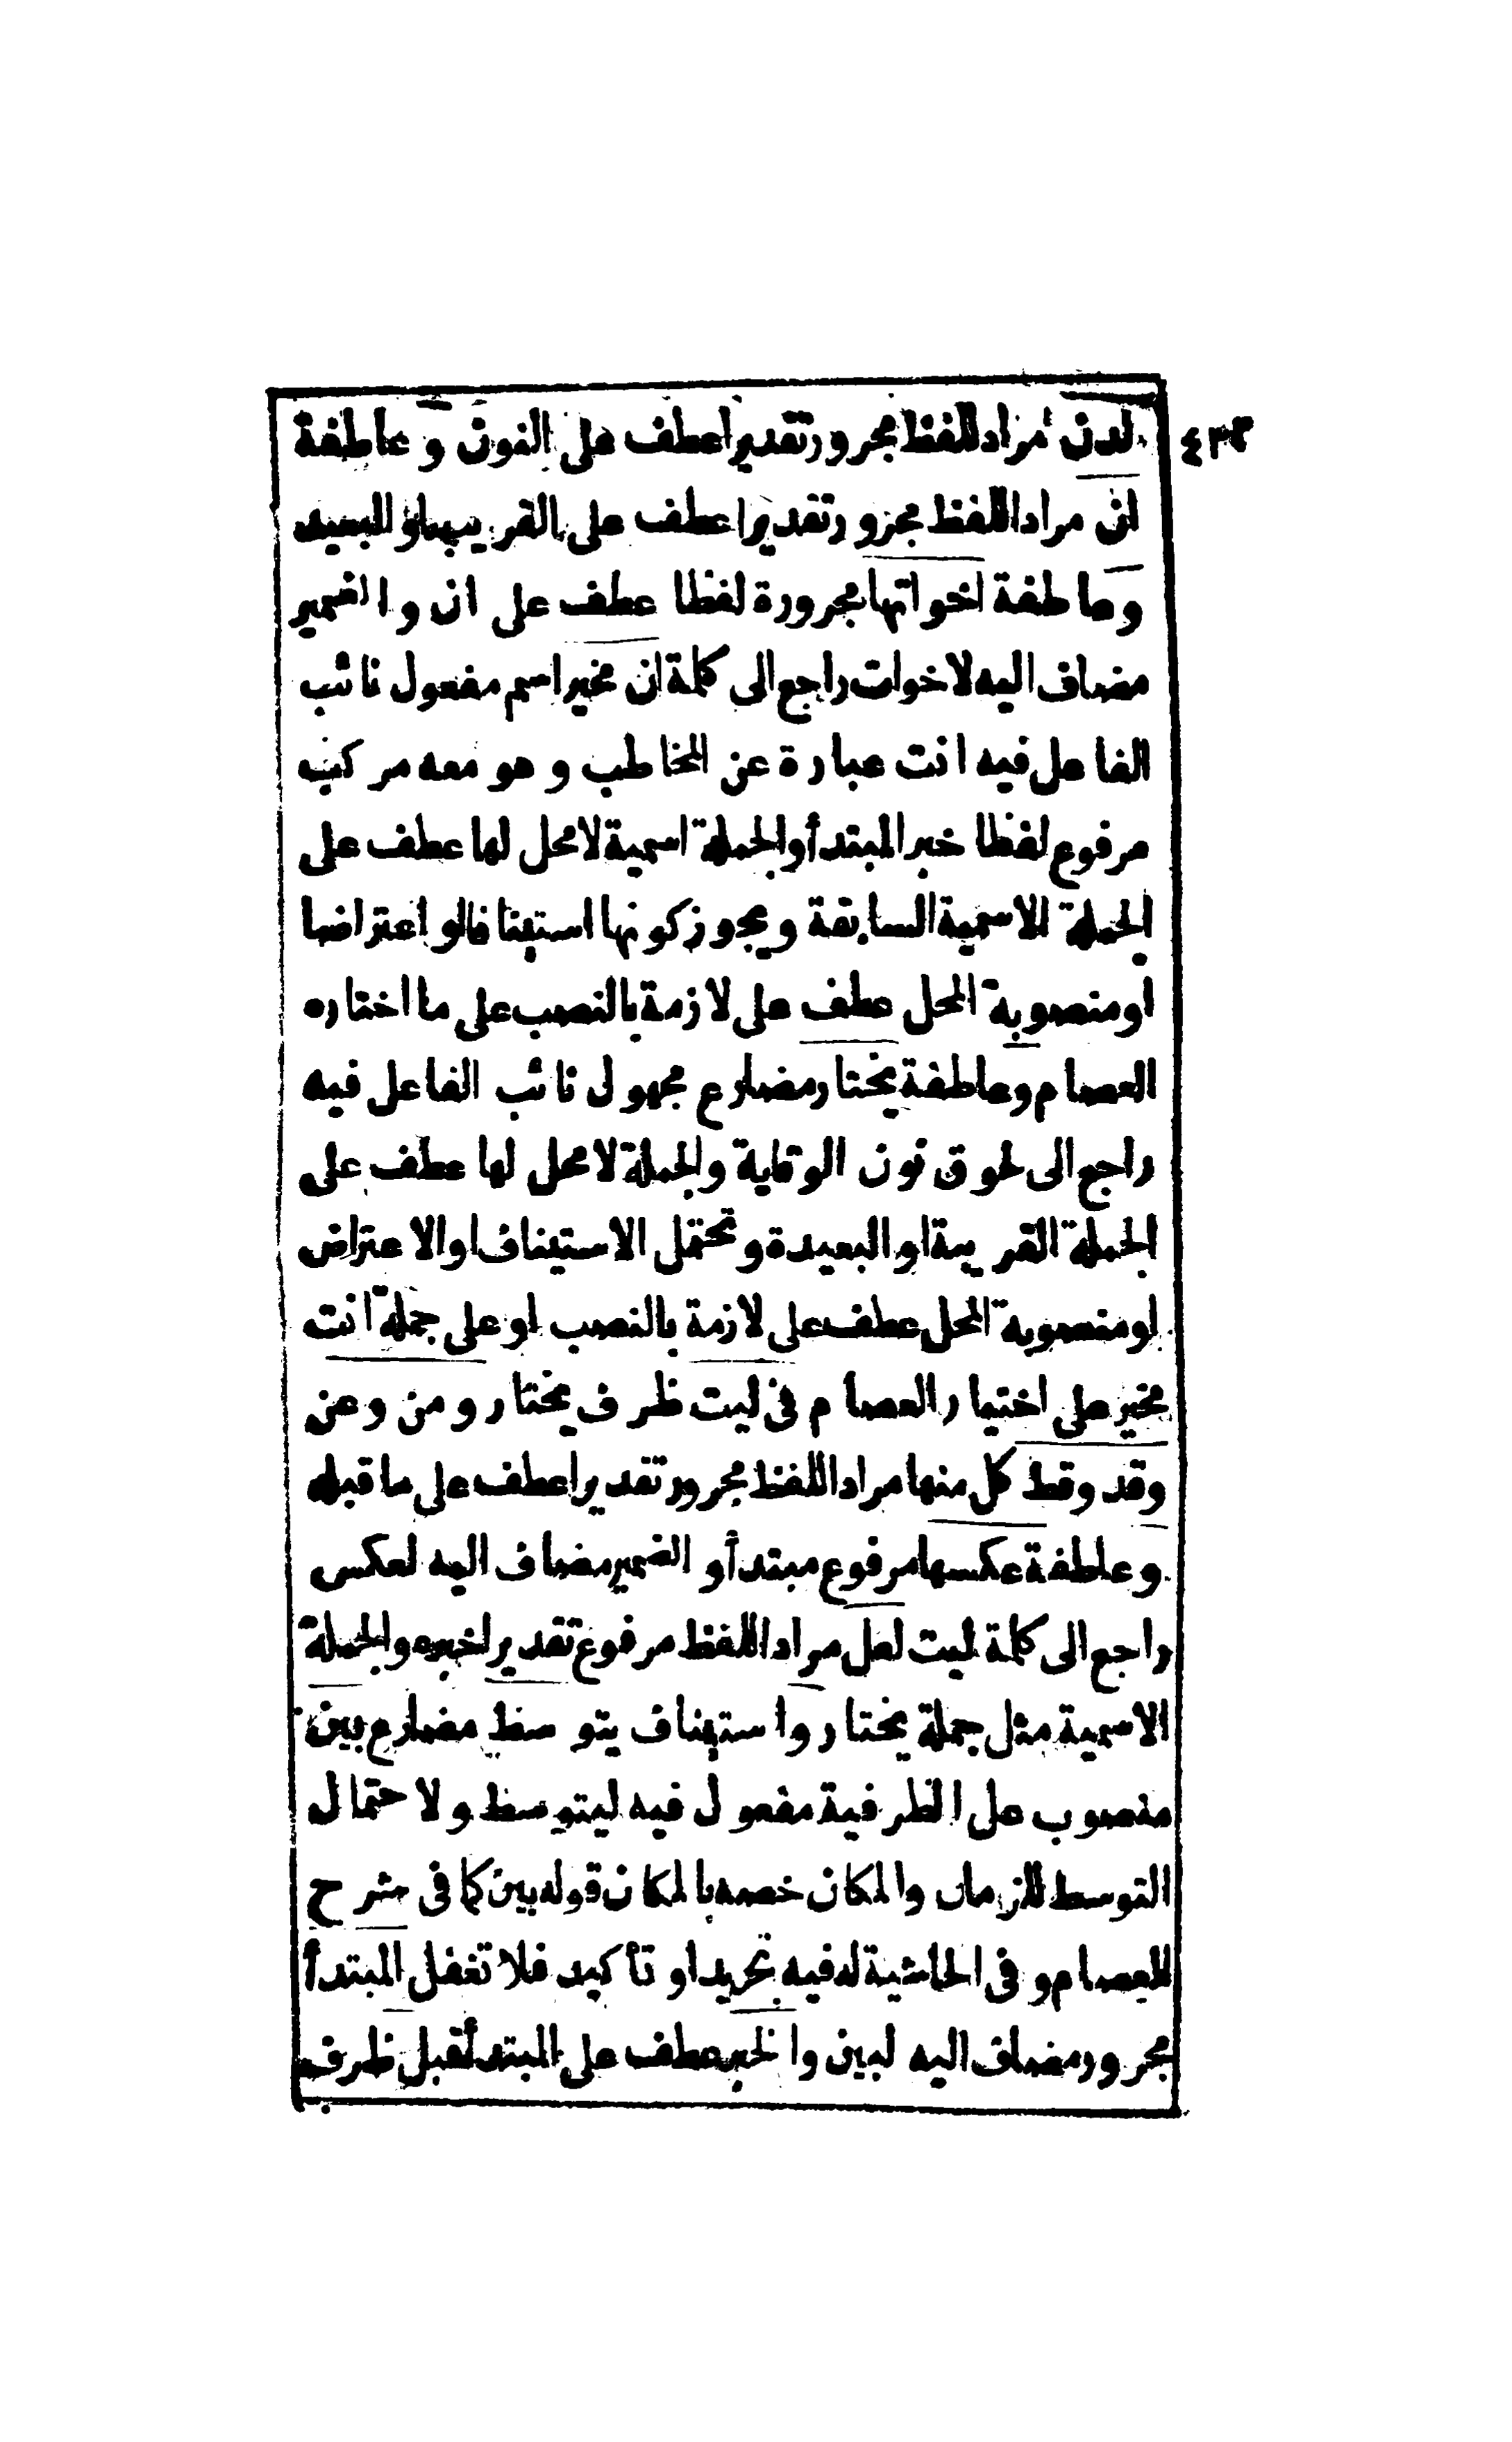 ٤٣٣
لدن مراد اللفظ مجرور تقديرا عطف على النون و عاطفة
ان مراد اللفظ مجرور تقديرا عطف على القريب او البعيد
وعاطفة اخواتها مجرورة لفظا عطف على ان والضمير
مضاف اليه لاخوات راجع الى كلمة ان مخير اسم مفعول نائب
الفاعل فيه انت عبارة عن المخاطب و هو معه مركب
مرفوع لفظا خبر المبتدأ والجملة اسمية لا محل لها عطف على
الجملة الاسمية السابقة ويجوز كونها استينافا او اعتراضا
او منصوبة المحل عطف على لازمة بالنصب على ما اختاره
العصام وعاطفة يختار مضارع مجهول نائب الفاعل فيه
راجع الى لحوق نون الوقاية والجملة لا محل لها عطف على
الجملة القريبة او البعيدة وتحتمل الاستيناف او الاعتراض
او منصوبة المحل عطف على لازمة بالنصب او على جملة انت
مخير على اختيار العصام فى ليت ظرف يختار ومن وعن
وقد وقط كل منها مراد اللفظ مجرور تقديرا عطف على ما قبله
وعاطفة عكسها مرفوع مبتدأ و الضمير مضاف اليه لعكس
راجع الى كلمة ليت لعل مراد اللفظ مرفوع تقديرا خبره والجملة
الاسمية مثل جملة يختار واستيناف يتوسط مضارع بين
منصوب على الظرفية مفعول فيه ليتوسط ولاحتمال
التوسط للزمان والمكان خصه بالمكان قوله بين كما فى شرح
العصام و فى الحاشية له فيه تجريد او تأكيد فلا تغفل المبتدأ
مجرور مضاف اليه لبين والخبر عطف على المبتدأ قبل ظرف